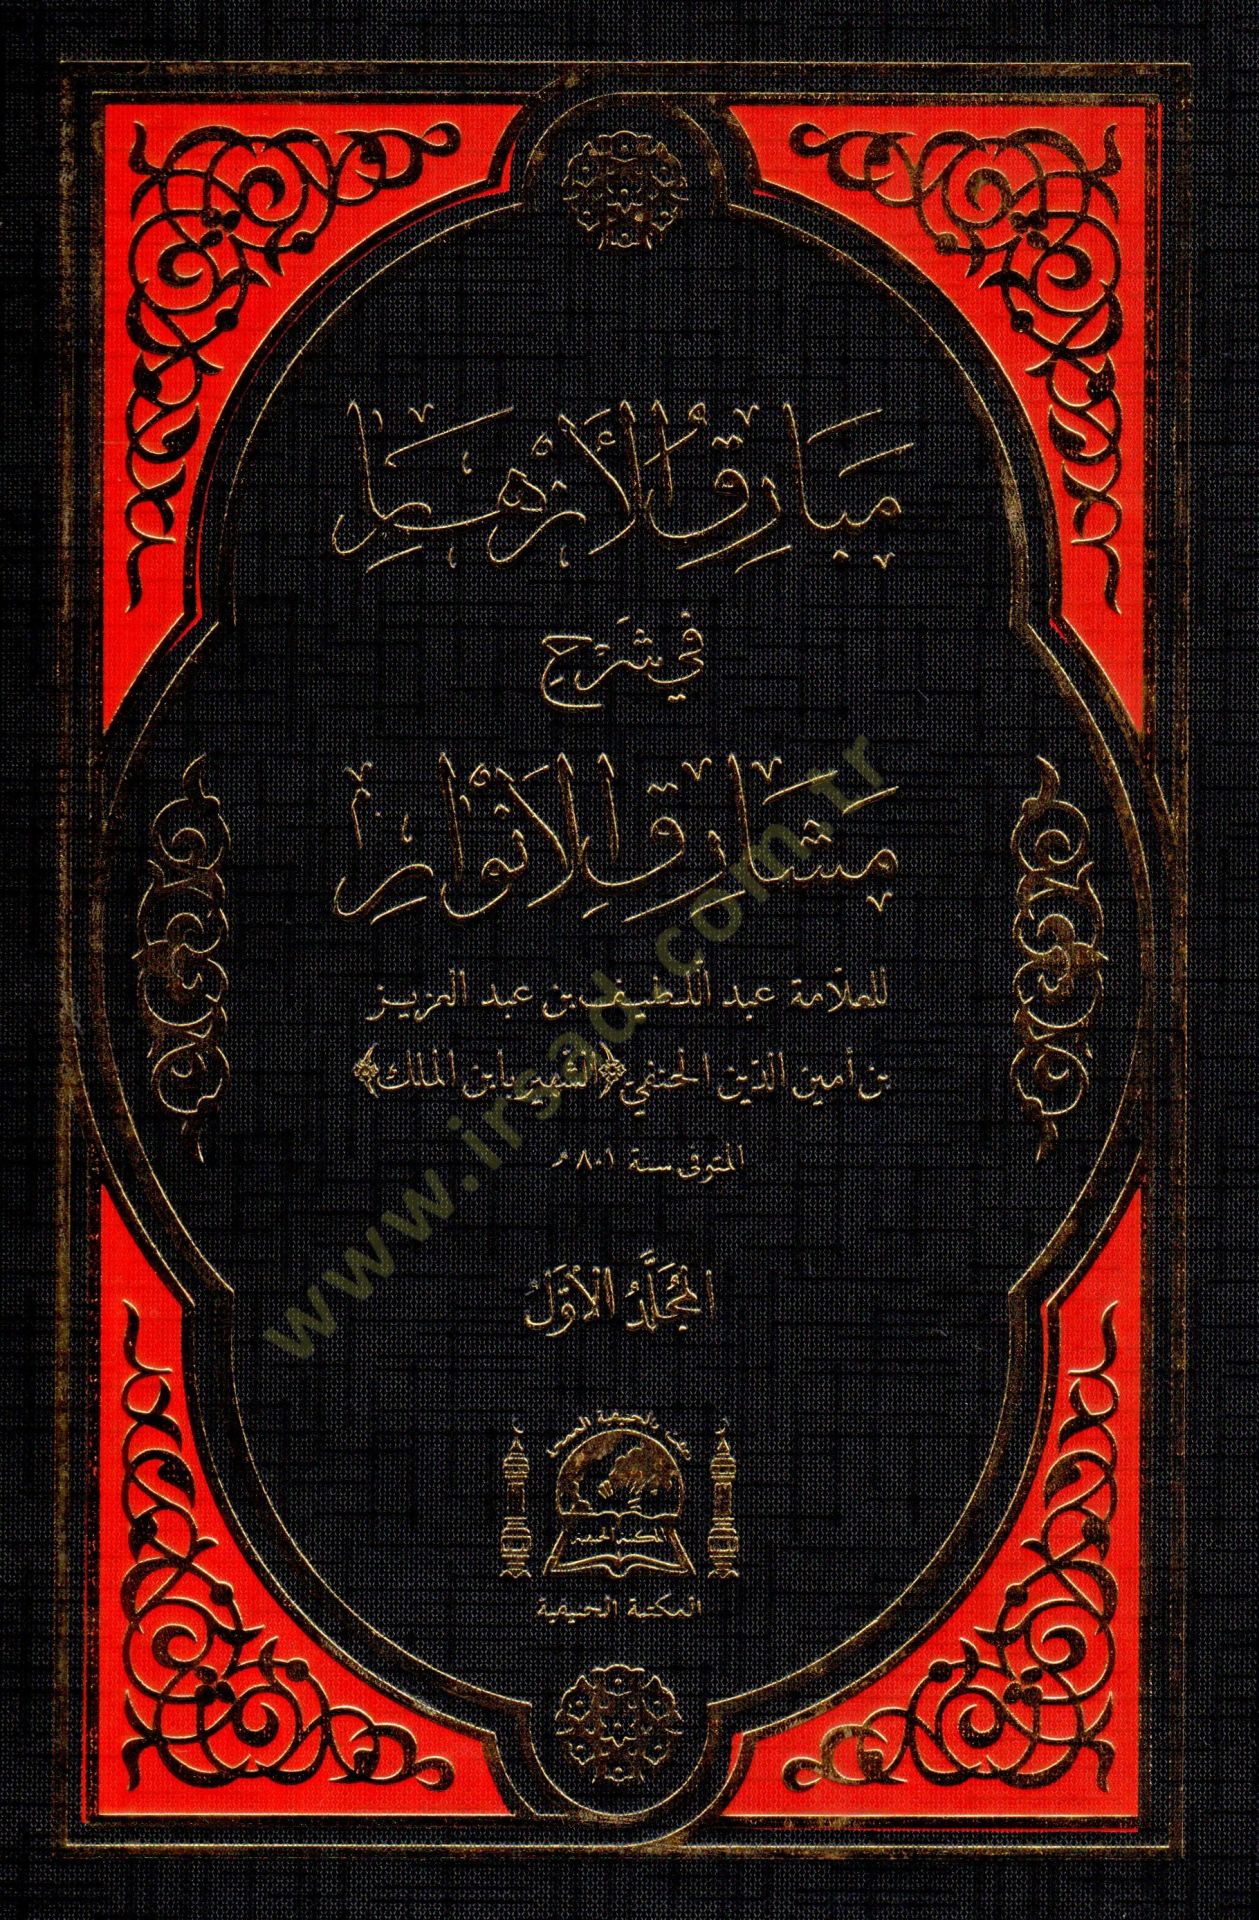 مَبَارِقُ الأَزْهَارِ
في شَرْحِ
مَشَارِقِ الأَنْوَارِ
للعلامة عبد اللطيف بن عبد العزيز
بن أمين الدين الحنفي ﴿الشهير بابن الملك﴾
المتوفى سنة ٨٠١ هـ
المُجَلَّدُ الأَوَّلُ
المكتبة الحنيفية
المكتبة الحنيفية
www.irsad.com.tr